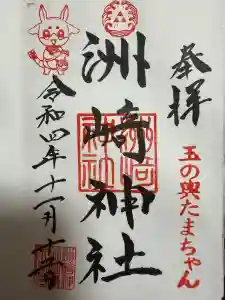 奉拝
玉の輿たまちゃん
洲崎神社
令和四年十一月十二日